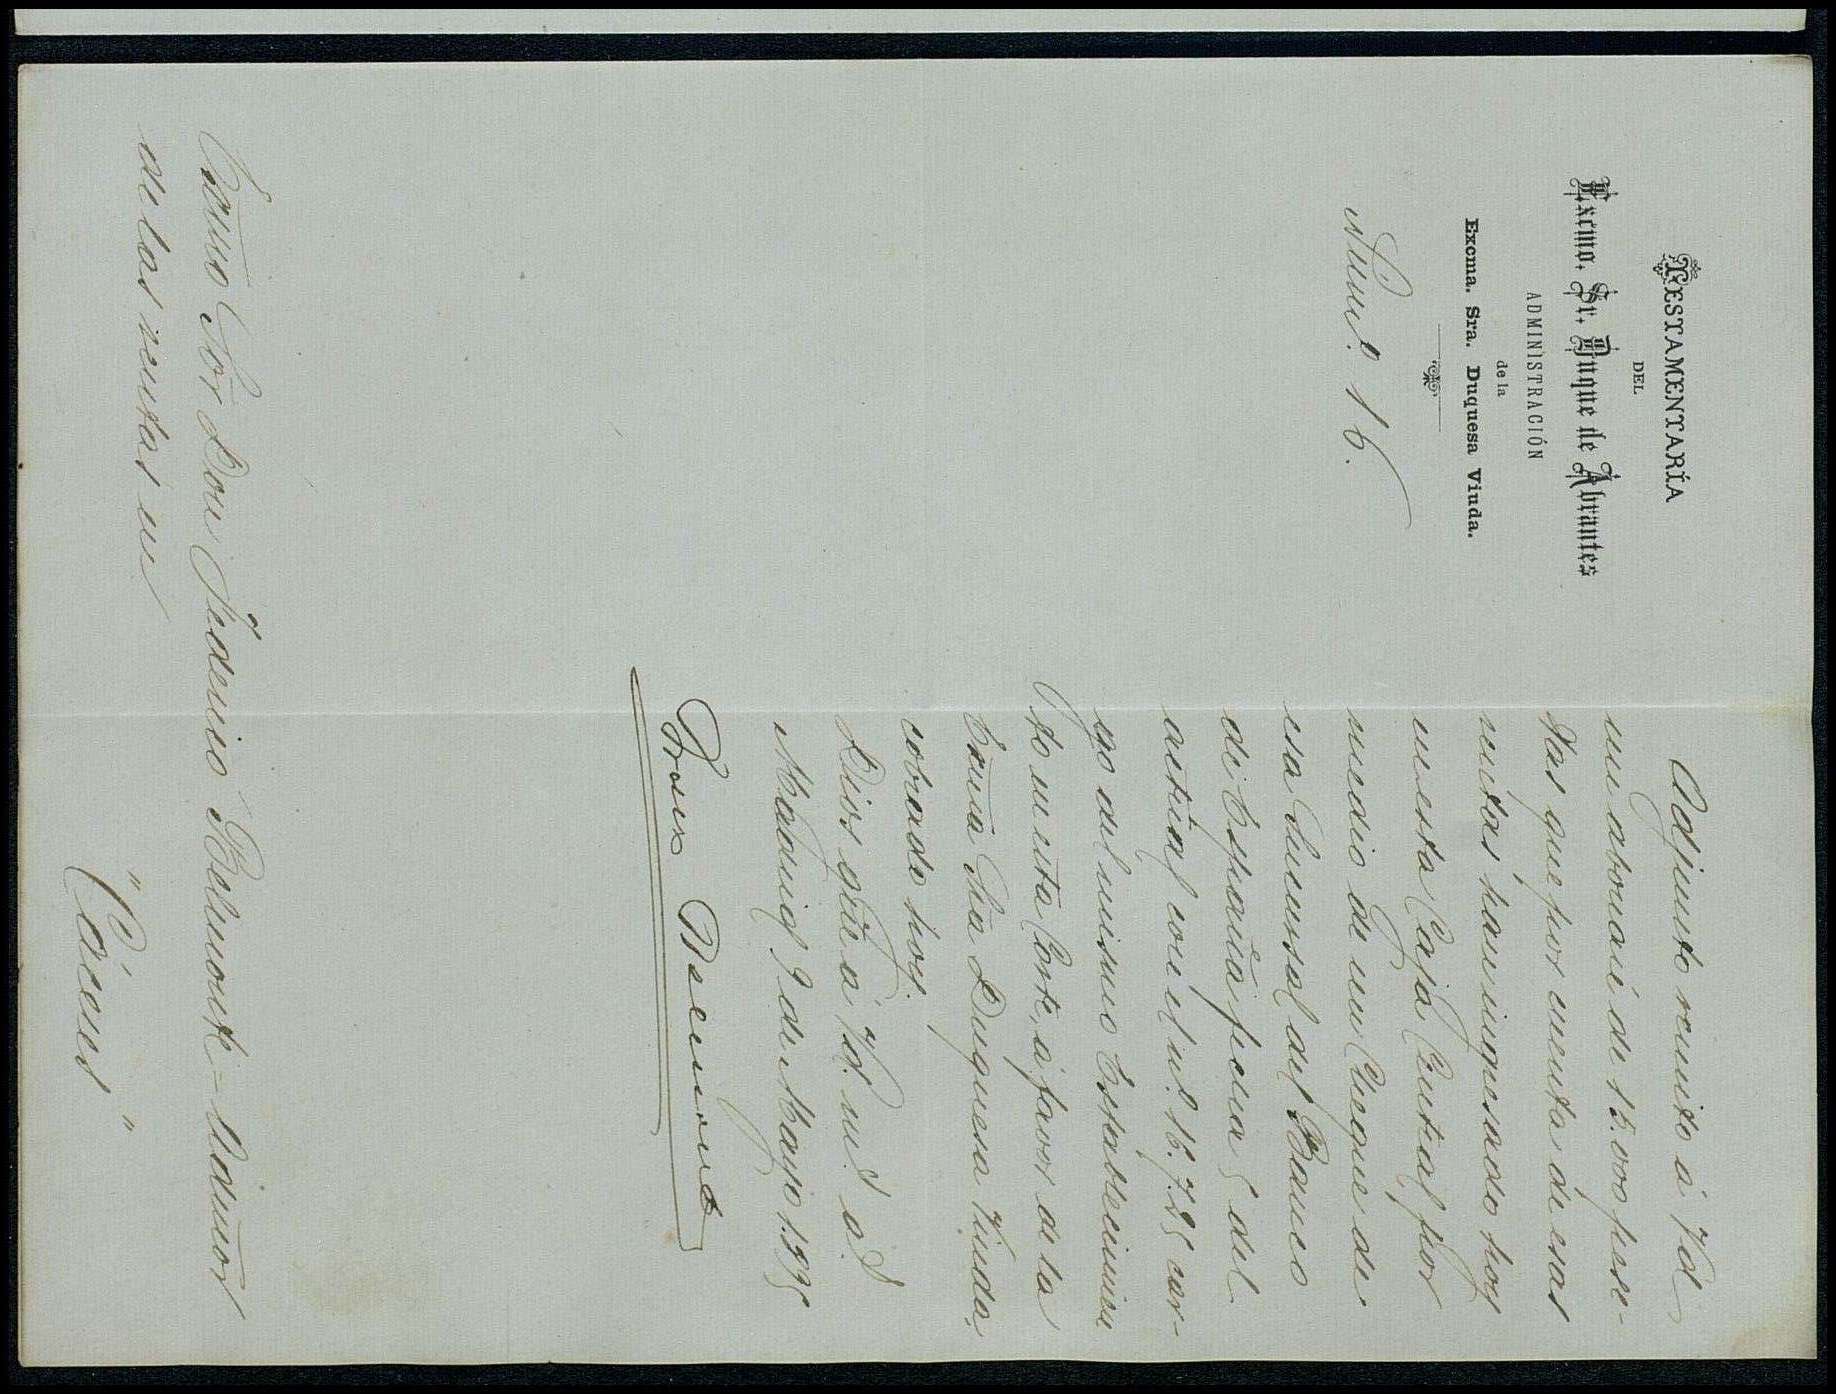 TESTAMENTARÍA
DEL
Excmo. Sr. Duque de Abrantes
ADMINISTRACIÓN
de la
Excma. Sra. Duquesa Viuda.
Num.º 16.
Adjunto remito á Vd
un abonaré de 15.000 pese-
tas que por cuenta de esas
rentas han ingresado hoy
en esta Caja Central por
medio de un Cheque de
esa Sucursal del Banco
de España fecha 5 del
actual con el n.º 16.725 car-
go del mismo Establecimien
to en esta Corte, á favor de la
Exma Sra Duquesa Viuda,
cobrado hoy.
Dios gue á Vd. m.s a.s
Madrid 9 de Mayo 1.895
Belmonte
Exmo Sor Don Federico Belmonte = Admor
de las rentas en
" Cáceres "